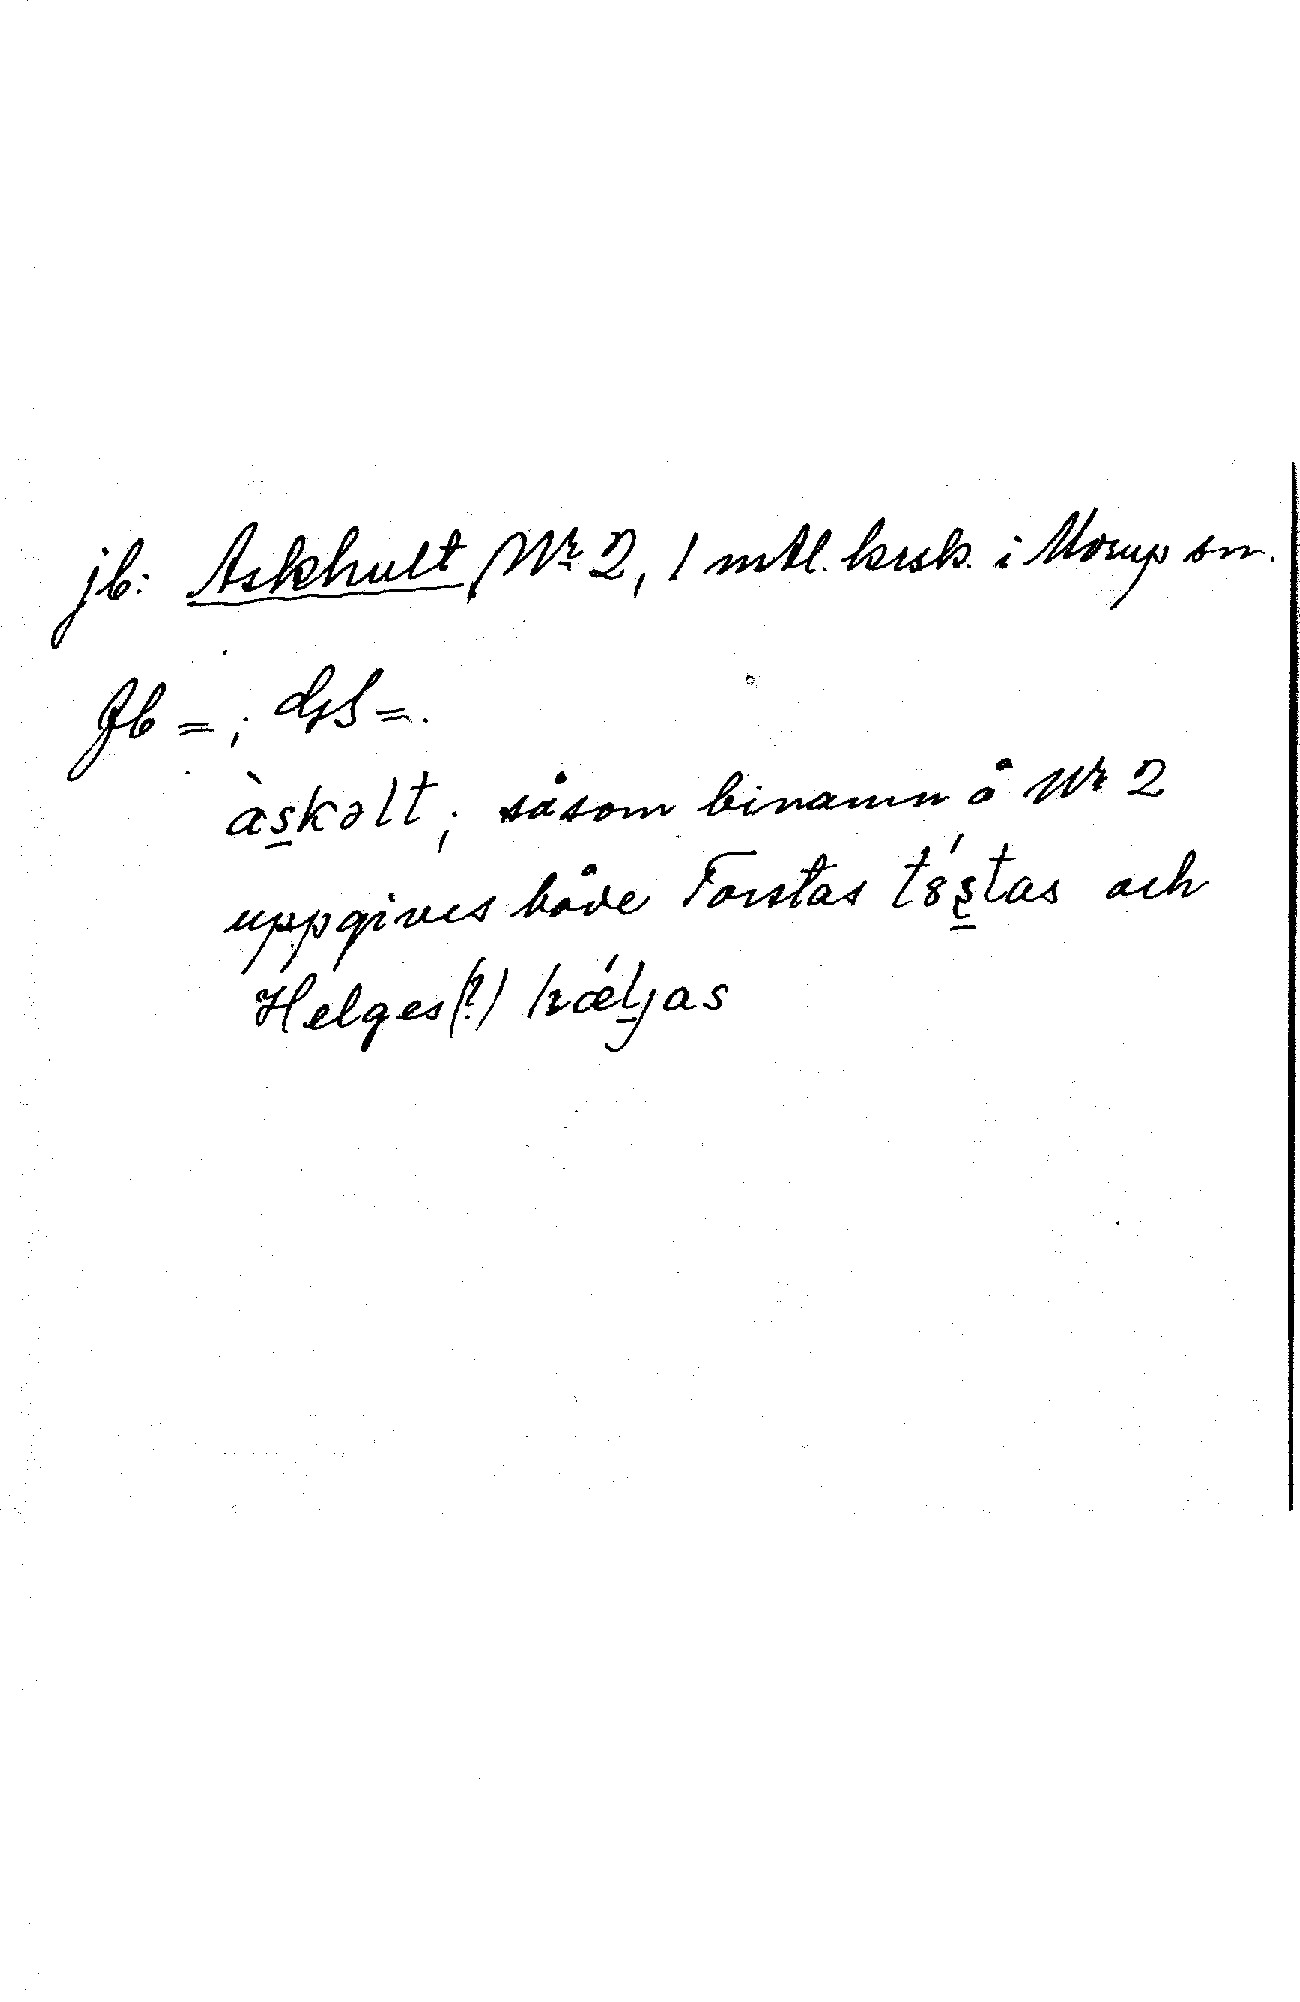 jb: Askhult Nr 2, 1 mtl. krsk. i Morup sn.
Jb = ; GS = .
àskəlt; såsom binamn å Nr 2
uppgives både Torstas tóstas och
Helges (?) hǽljas